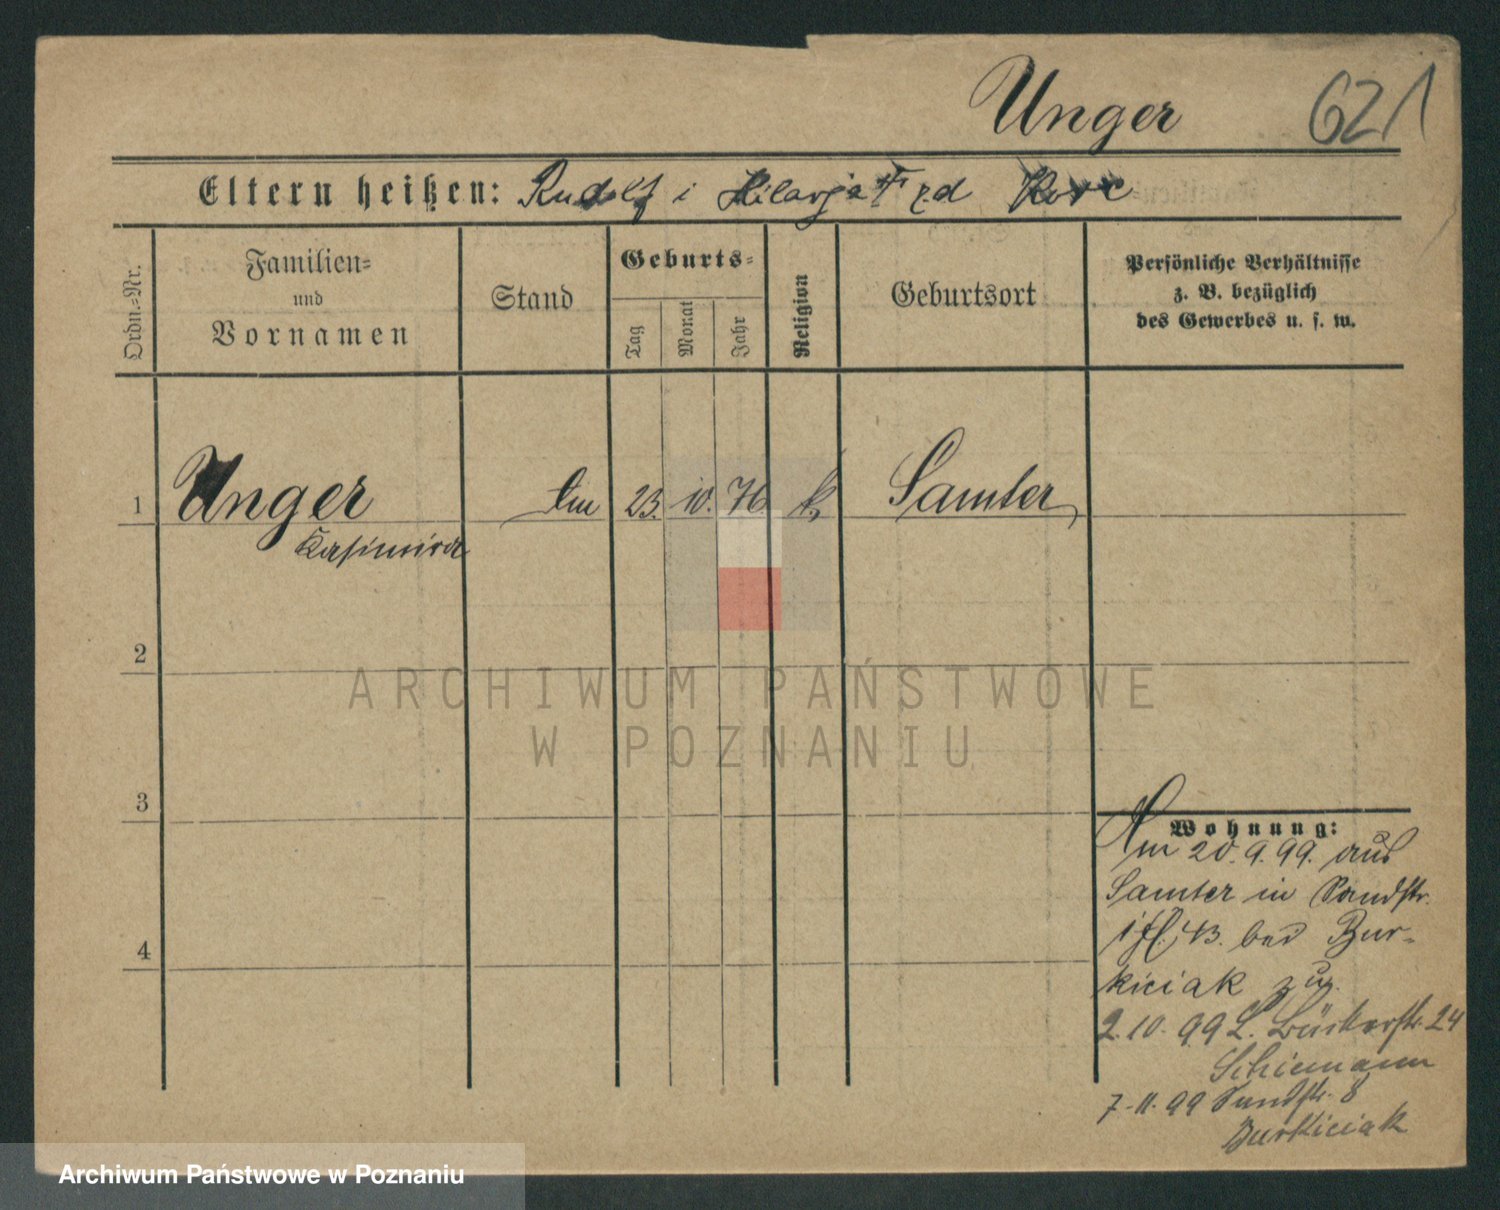 Unger 621
Eltern heißen: Rudolf i Hilarja
Ordn.-Nr.
Familien-
und
Vornamen
Stand
Geburts-
Tag
Monat
Jahr
Religion
Geburtsort
Persönliche Verhältnisse
z. B. bezüglich
des Gewerbes u. s. w.
1 Unger 23. 10. 76. k. Samter
Kasimira
2
ARCHIWUM PAŃSTWOWE
W POZNANIU
3
Wohnung:
Am 20. 9. 99. aus
Samter in Sandstr.
43. bei Bur-
kiciak zug.
2. 10. 99 24
Schiemann
7.-11. 99 Sandstr. 8
Burkiciak
4
Archiwum Państwowe w Poznaniu